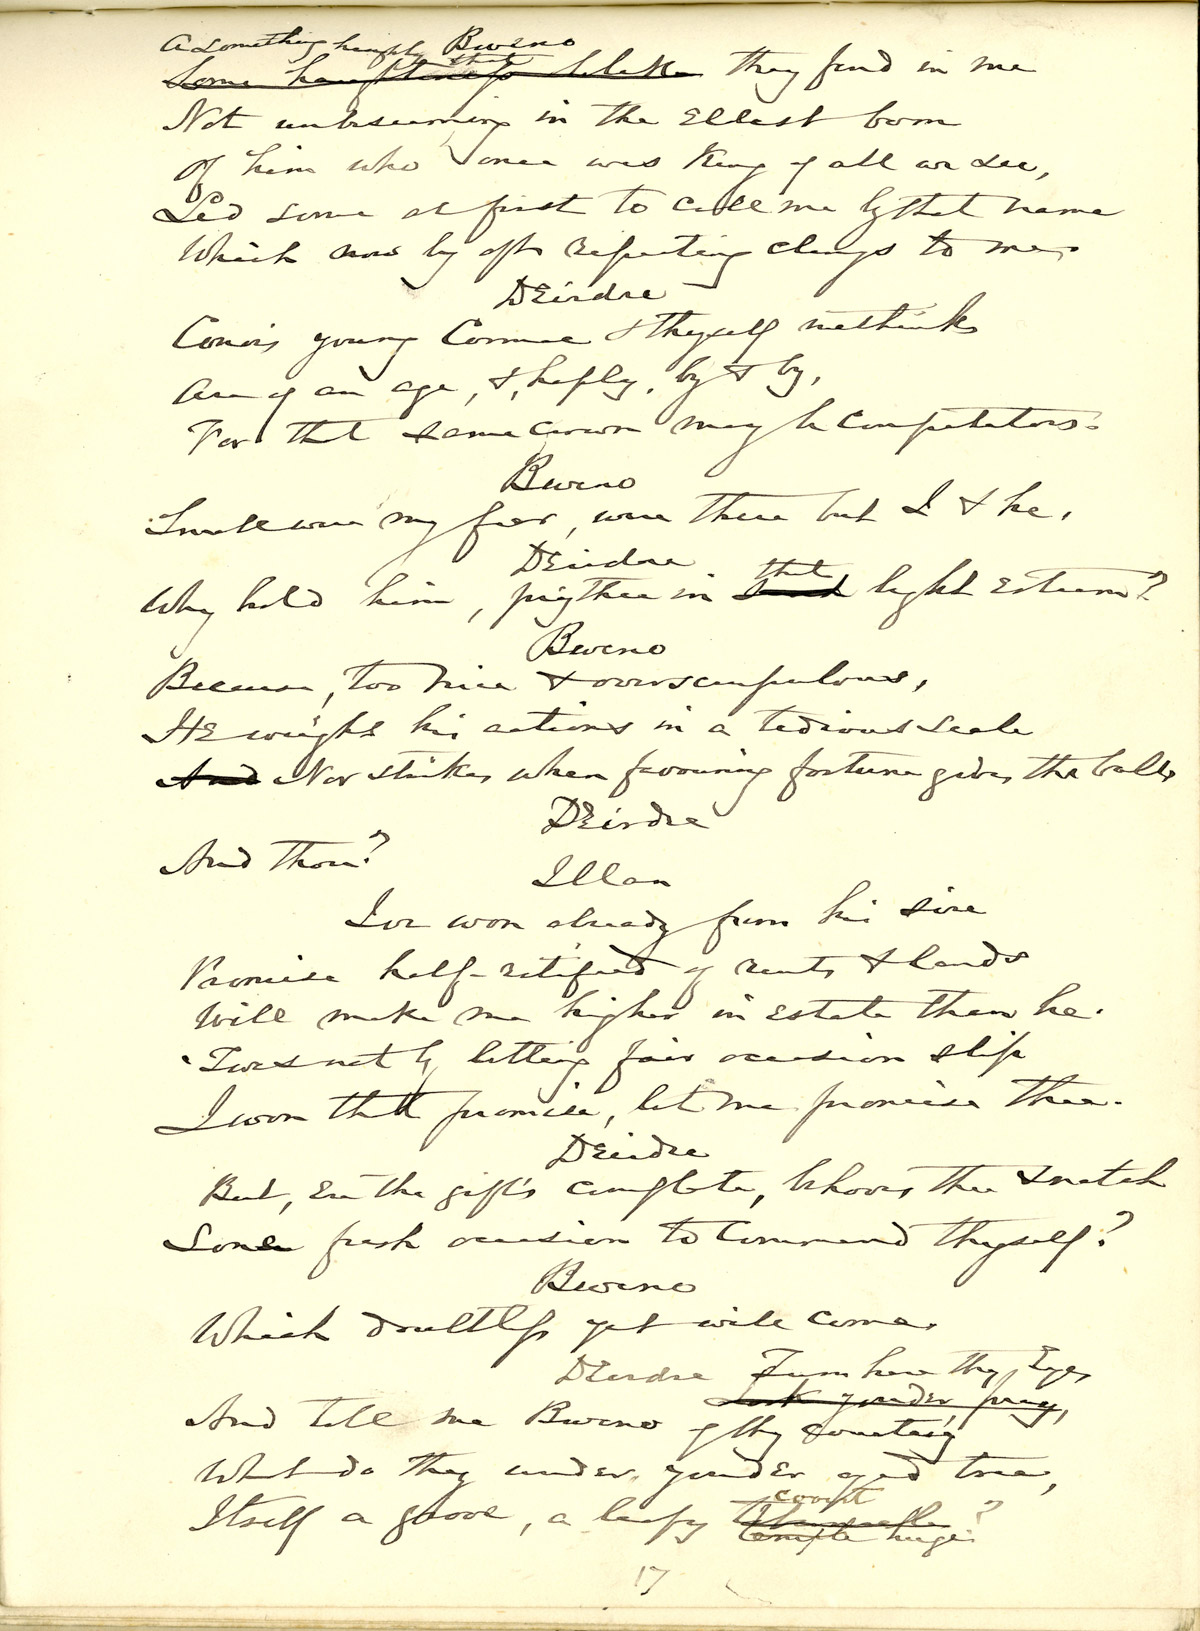 Bweno
A something haughty that
Some haughtiness belike they find in me
Not unbeseeming in the Eldest born
Of him who once was King of all we see,
Led some at first to call me by that name
Which now by oft repeating clings to me,
DEirdre
Conor's young Cormac & thyself methinks
Are of an age, &, haply, by & by,
For that same crown may be competitors.
Bweno
Small were my fear, were there but I & he.
DEirdre
Why hold him, prythee in such that light Esteem?
Bweno
Because, too nice & overscrupulous,
HE weighs his actions in a tedious scale
And Nor strikes when favouring fortune gives the ball
DEirdre
And thou?
Illan
I've won already from his sire
Promise half-ratified of rents & lands
Will make me higher in Estate than he.
'Twas not by letting fair occasion slip
I won that promise, let me promise thee.
DEirdre
But, Ere the gift's complete, behoves thee snatch
Some fresh occasion to Command thyself?
Bweno
Which doubtless yet will come.
DEirdre Turn here thy Eyes
Look yonder, pray,
And tell me Bweno of thy courtesy
What do they under yonder aged tree,
Itself a grove, a leafy
court
temple huge?
17